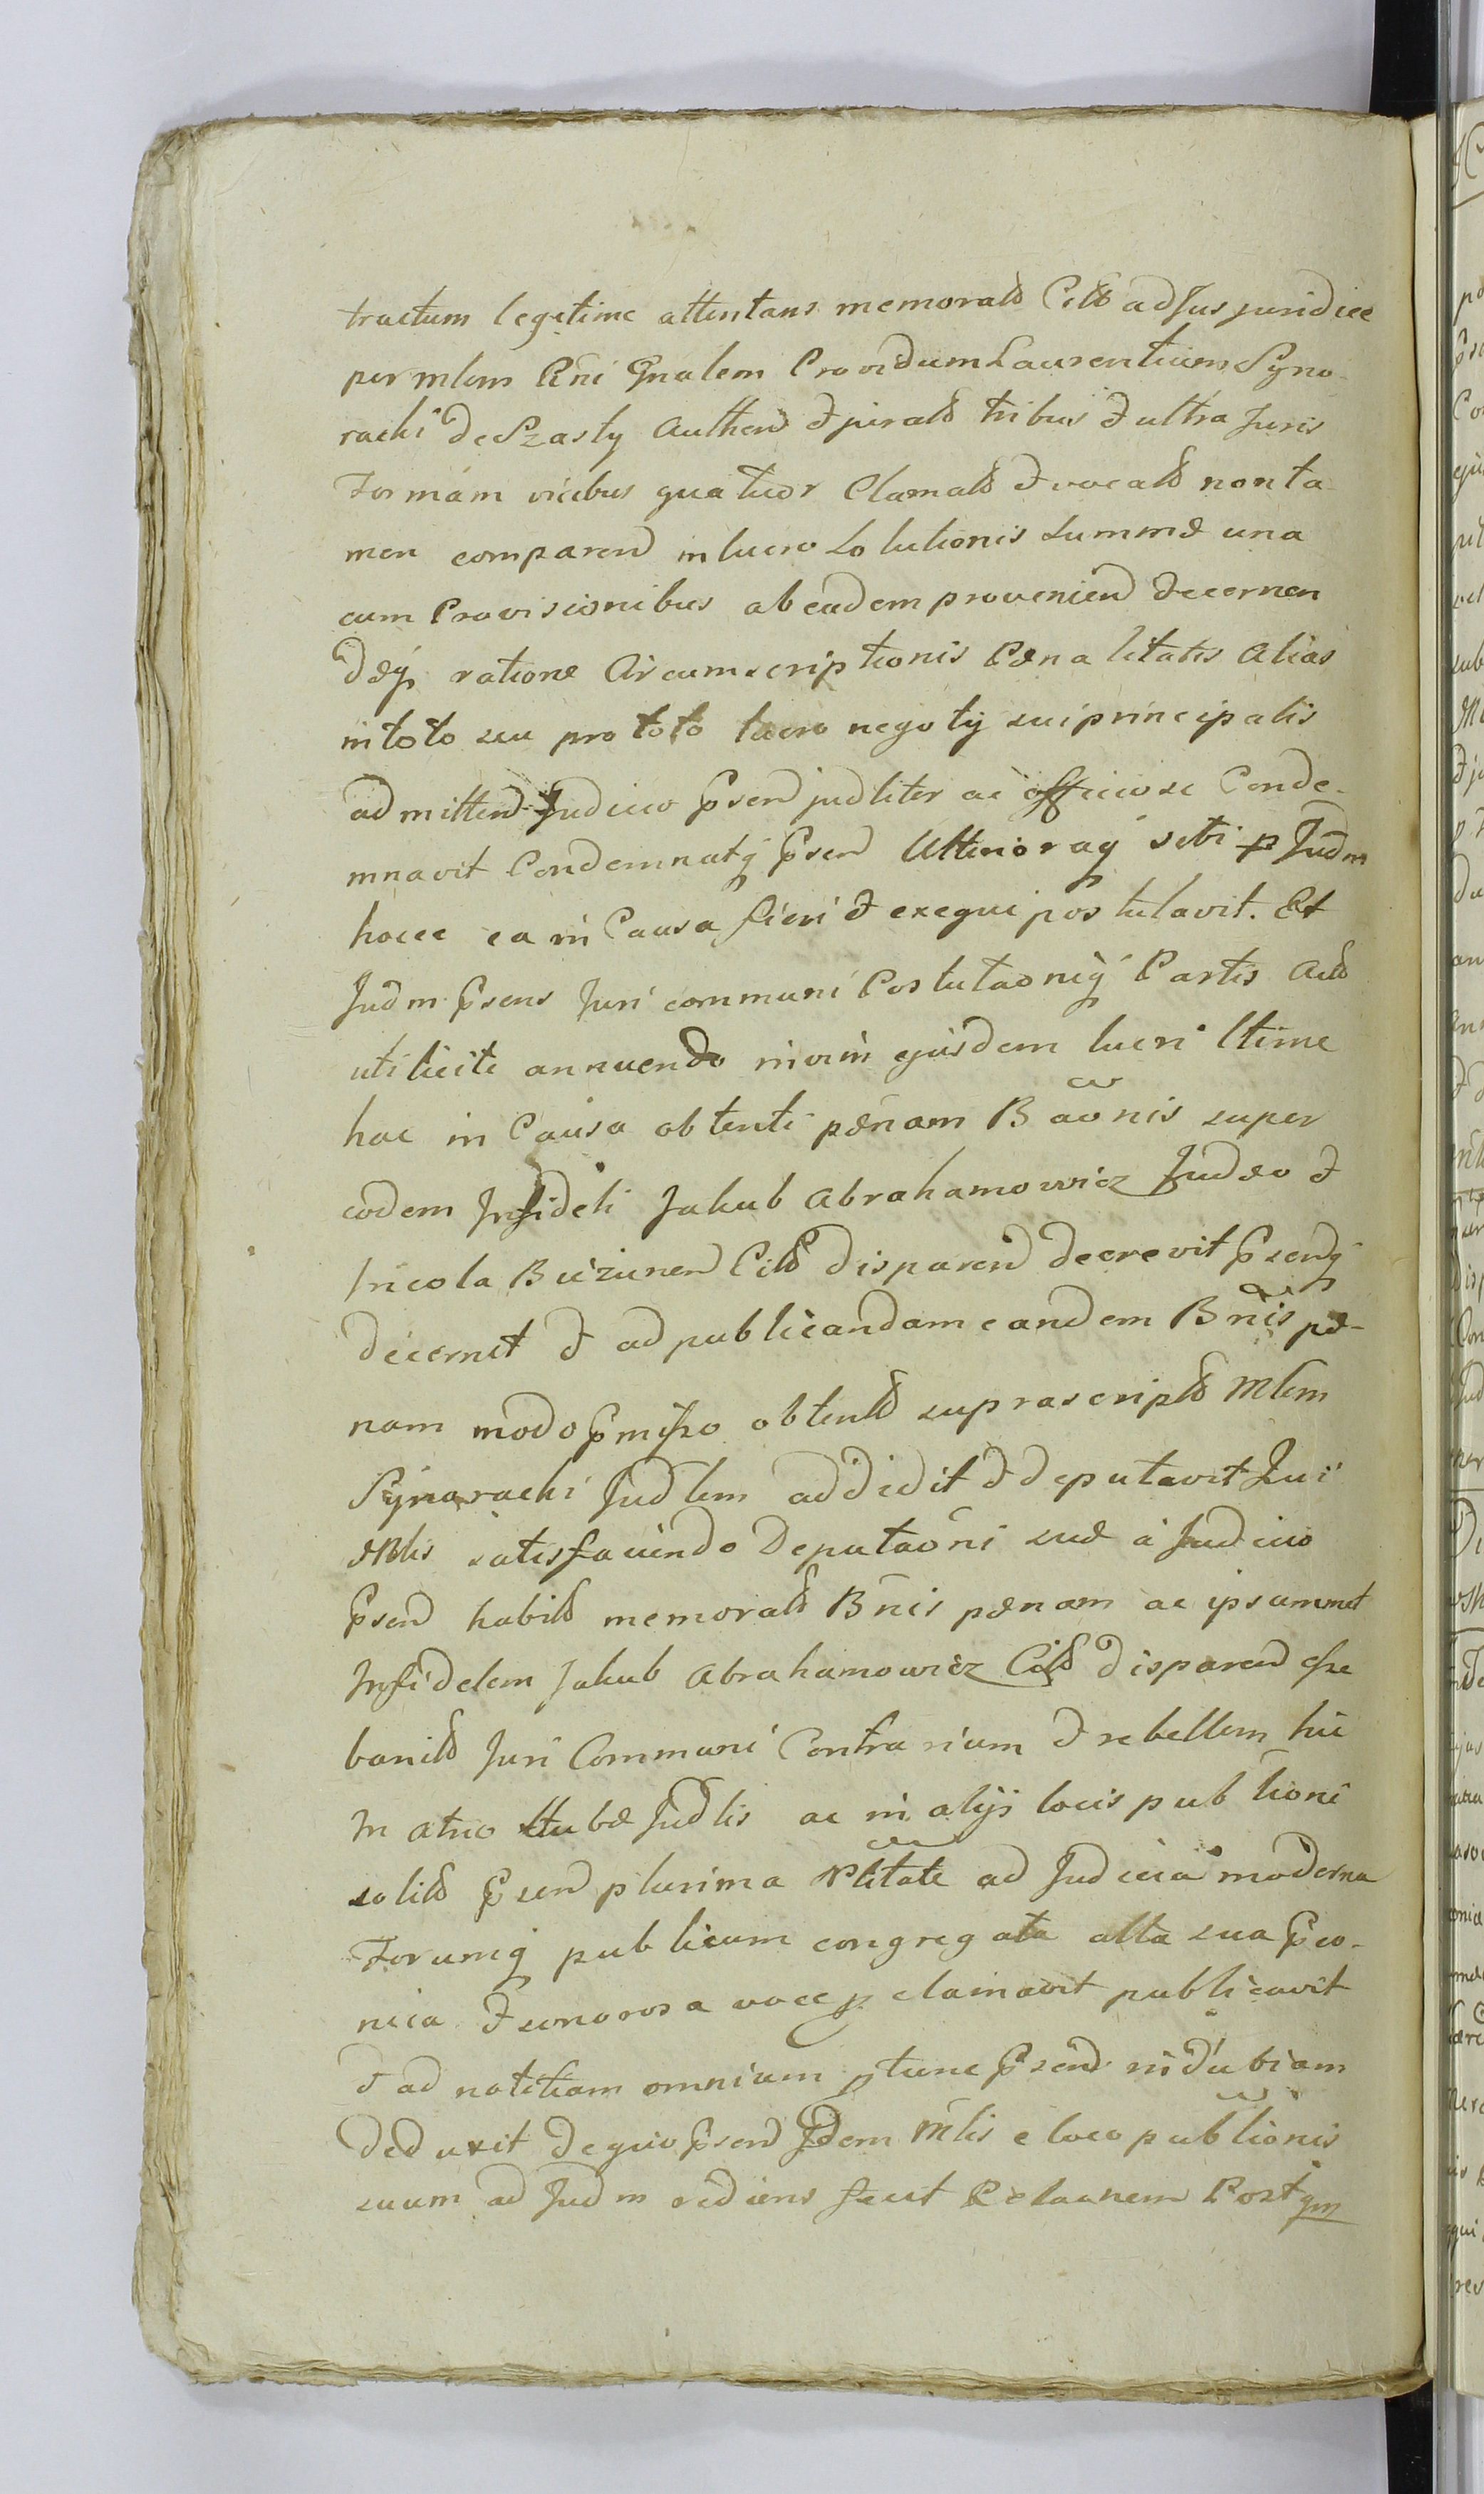 tractum legitime attentans memoratδ Citδ ad Jus juridice
per mlem Rni Gnalem Providum Laurentium Syno-
racki de Szasty Authen & juratδ tribus & ultra Juris
Formam vicibus quatuor Clamatδ & vocatδ non ta
men comparen in lucro Solutionis Summæ una
cum Provisionibus ab eadem provenien decernen
dæq ratione Circumscriptionis Pœnalitatis Alias
in toto seu pro toto lucro negotÿ sui principalis
admitten Judicio Psen judliter ac officiose Conde-
mnavit Condemnatq Psen Ulterioraq sibi p Judm
hocce ea in Causa fieri & exequi postulavit. Et
Judm Psens Juri communi Postulaoniq Partis Actδ
uti licite annuendo in vim ejusdem lucri ltime
hac in Causa obtenti pœnam Baonis super
eodem Infideli Jakub Abrahamowicz Judæo &
Incola Bieżunen Citδ disparen decrevit Psenq
decernit & ad publicandam eandem Bnis pœ-
nam modo Pmisso obtentδ suprascriptδ Mlem
Synoracki Judlem addidit & deputavit Qui
Mlis satisfaciendo Deputaoni suæ a Judicio
Psen habitδ memoratδ Bnis pœnam ac ipsummet
Infidelem Jakub Abrahamowicz Citδ disparen esse
banitδ Juri Communi Contrarium & rebellem hic
In atrio Stubæ Judlis ac in alijs locis publioni
solitδ Psen plurima Nblitate ad Judicia moderna
Forumq publicum congregata alta sua Pco-
nica & sonorosa voce p clamavit publicavit
& ad notitiam omnium ptunc Psen indubiam
deduxit de quio Psen Idem Mlis e loco publionis
suum ad Judm rediens fecit Relaonem Postqm